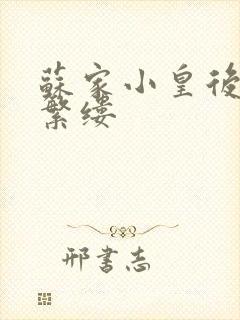 蘇家小皇後
繁縷
邢書志